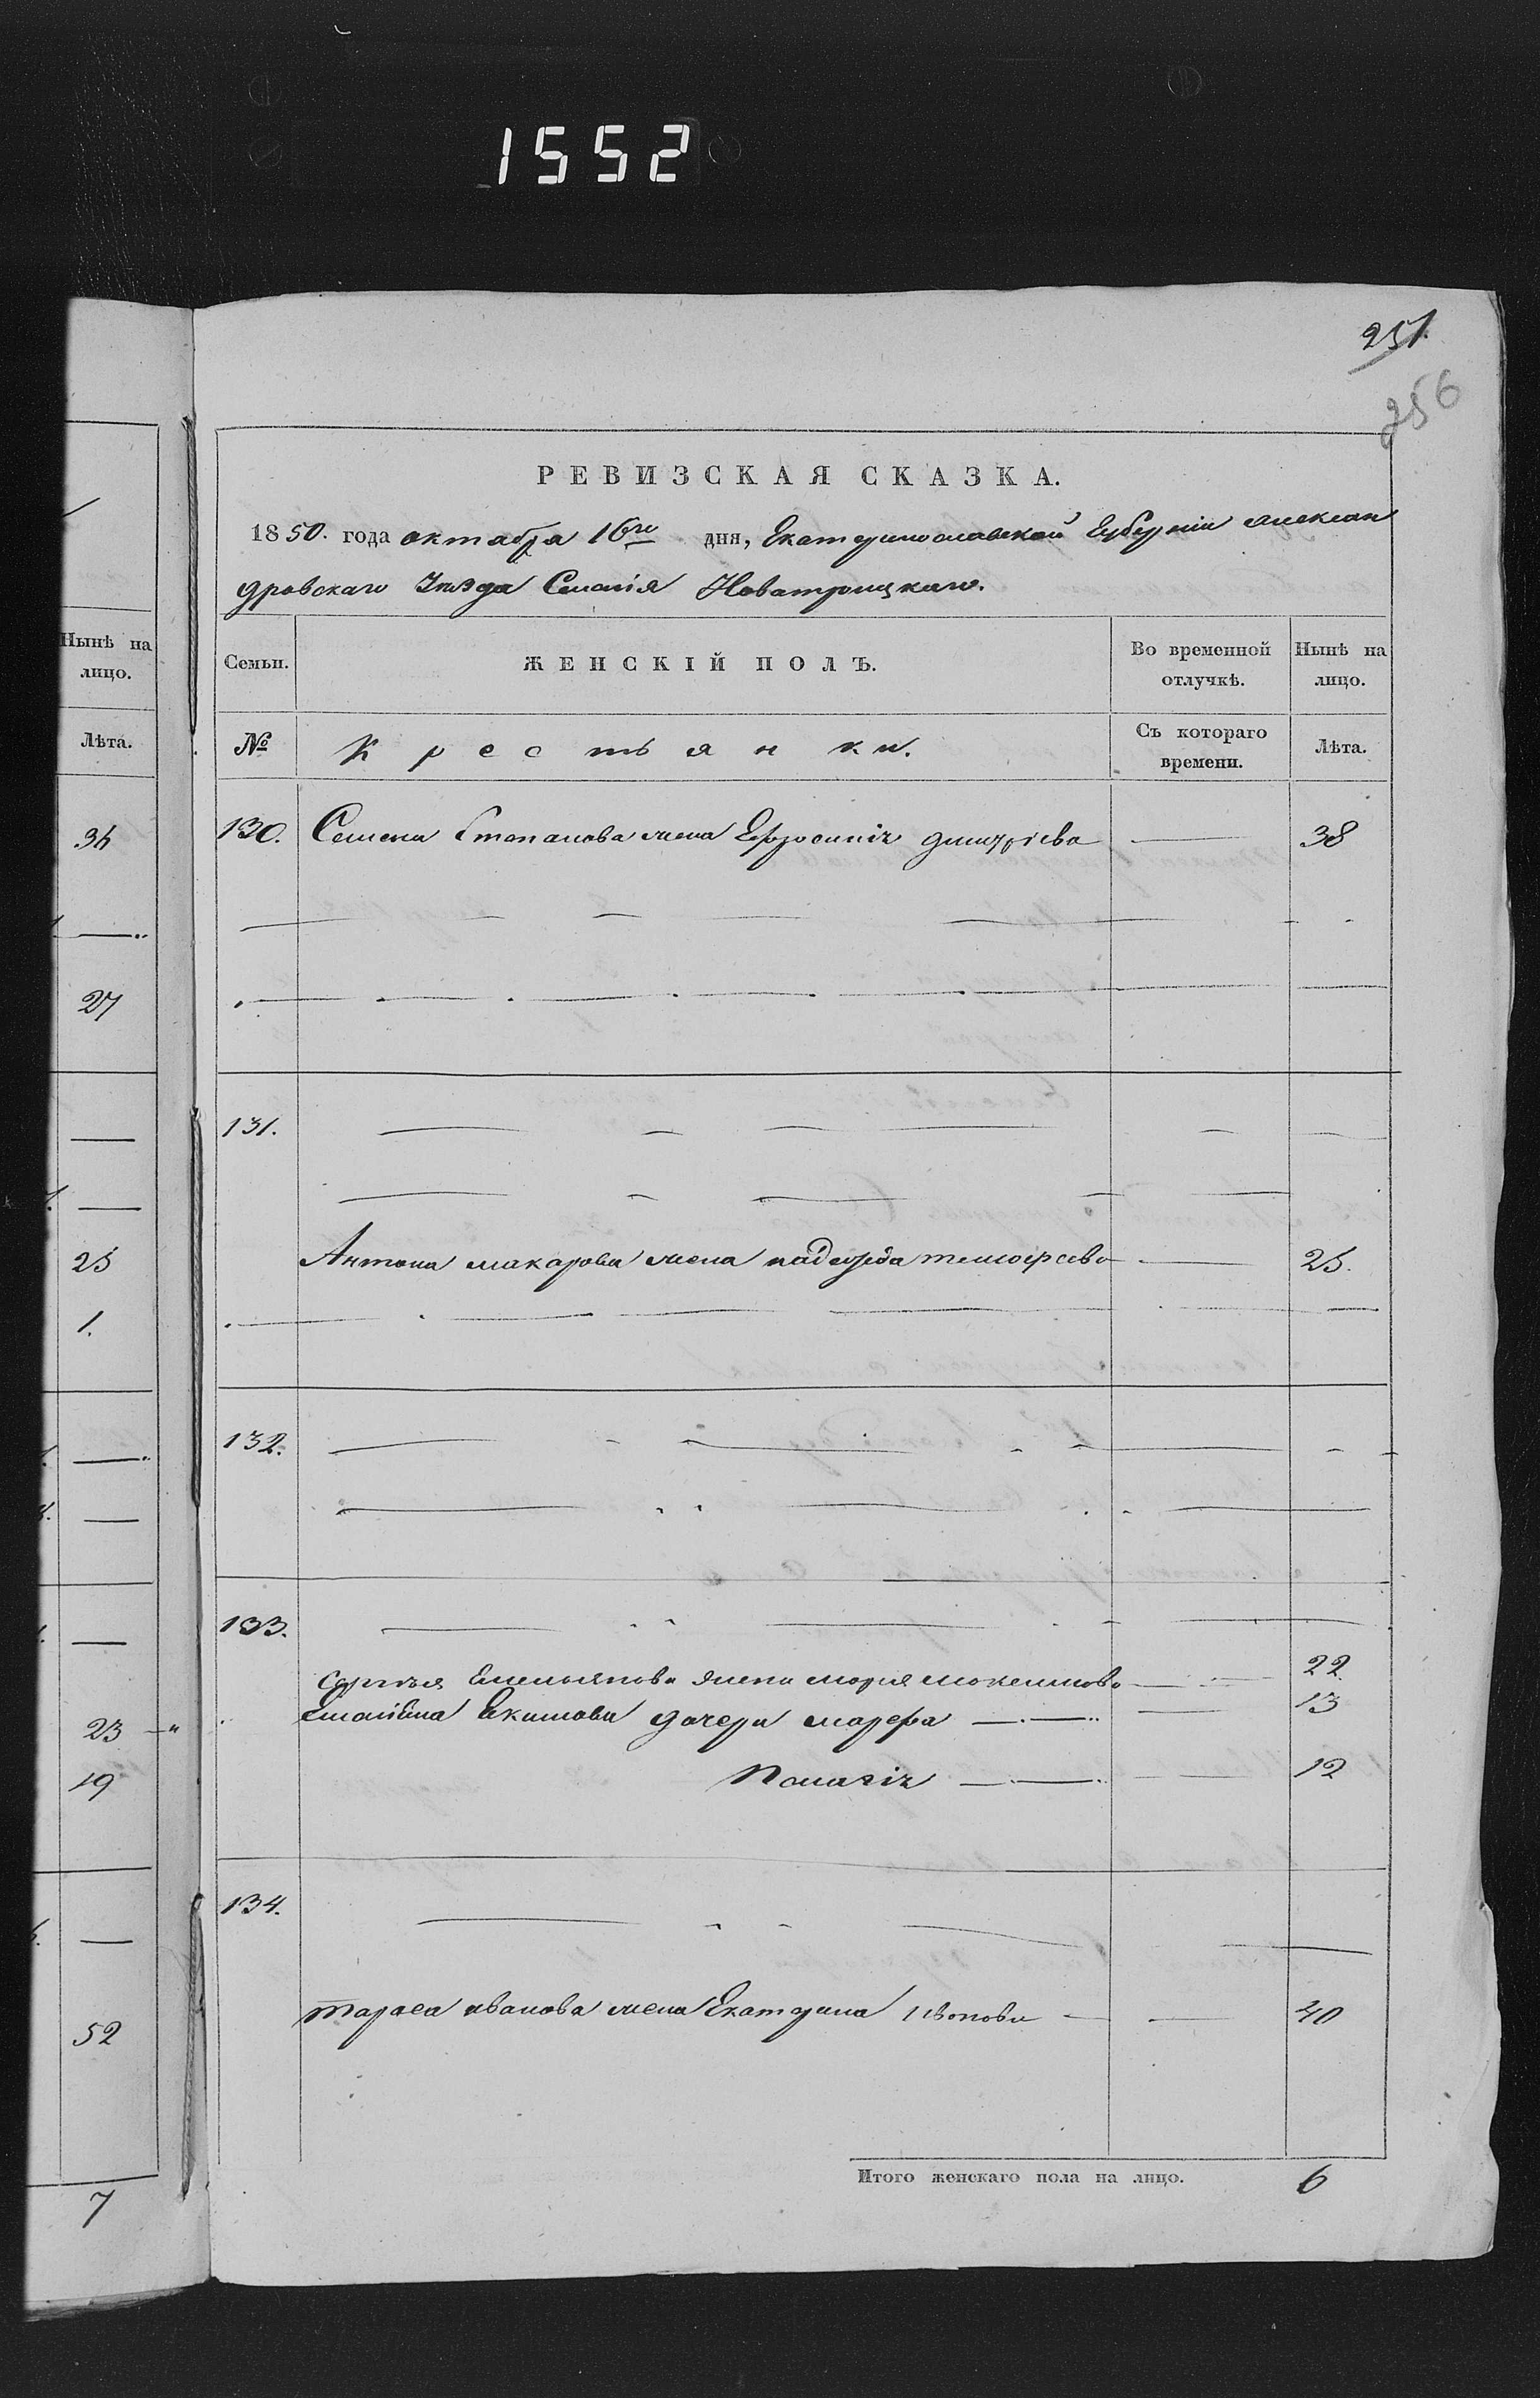 1552
251.
256
РЕВИЗСКАЯ СКАЗКА.
1850. года октабра 16го дня, Екатеринославской Губерніи Алексан
дровскаго Уѣзда Селенія Новатроицкаго.
Нынѣ на лицо.
Лѣта.
34
27
25
1.
23
19
52
7
Семьи. ЖЕНСКІЙ ПОЛЪ. Во временной отлучкѣ. Нынѣ на лицо.
№ Крестьянки. Съ котораго времени. Лѣта.
130. Семена Степанова жена Ефросинія Дмитріева — 38
131.
Антона Макарова жена Надежда Тимофеева — 25.
132.
133.
Сергѣя Емельянова жена Мария Мокеимова — 22.
Екимова дочери Марфа — 13
Пелагія — 12
134.
Тараса Иванова жена Екатерина — 40
Итого женскаго пола на лицо. 6